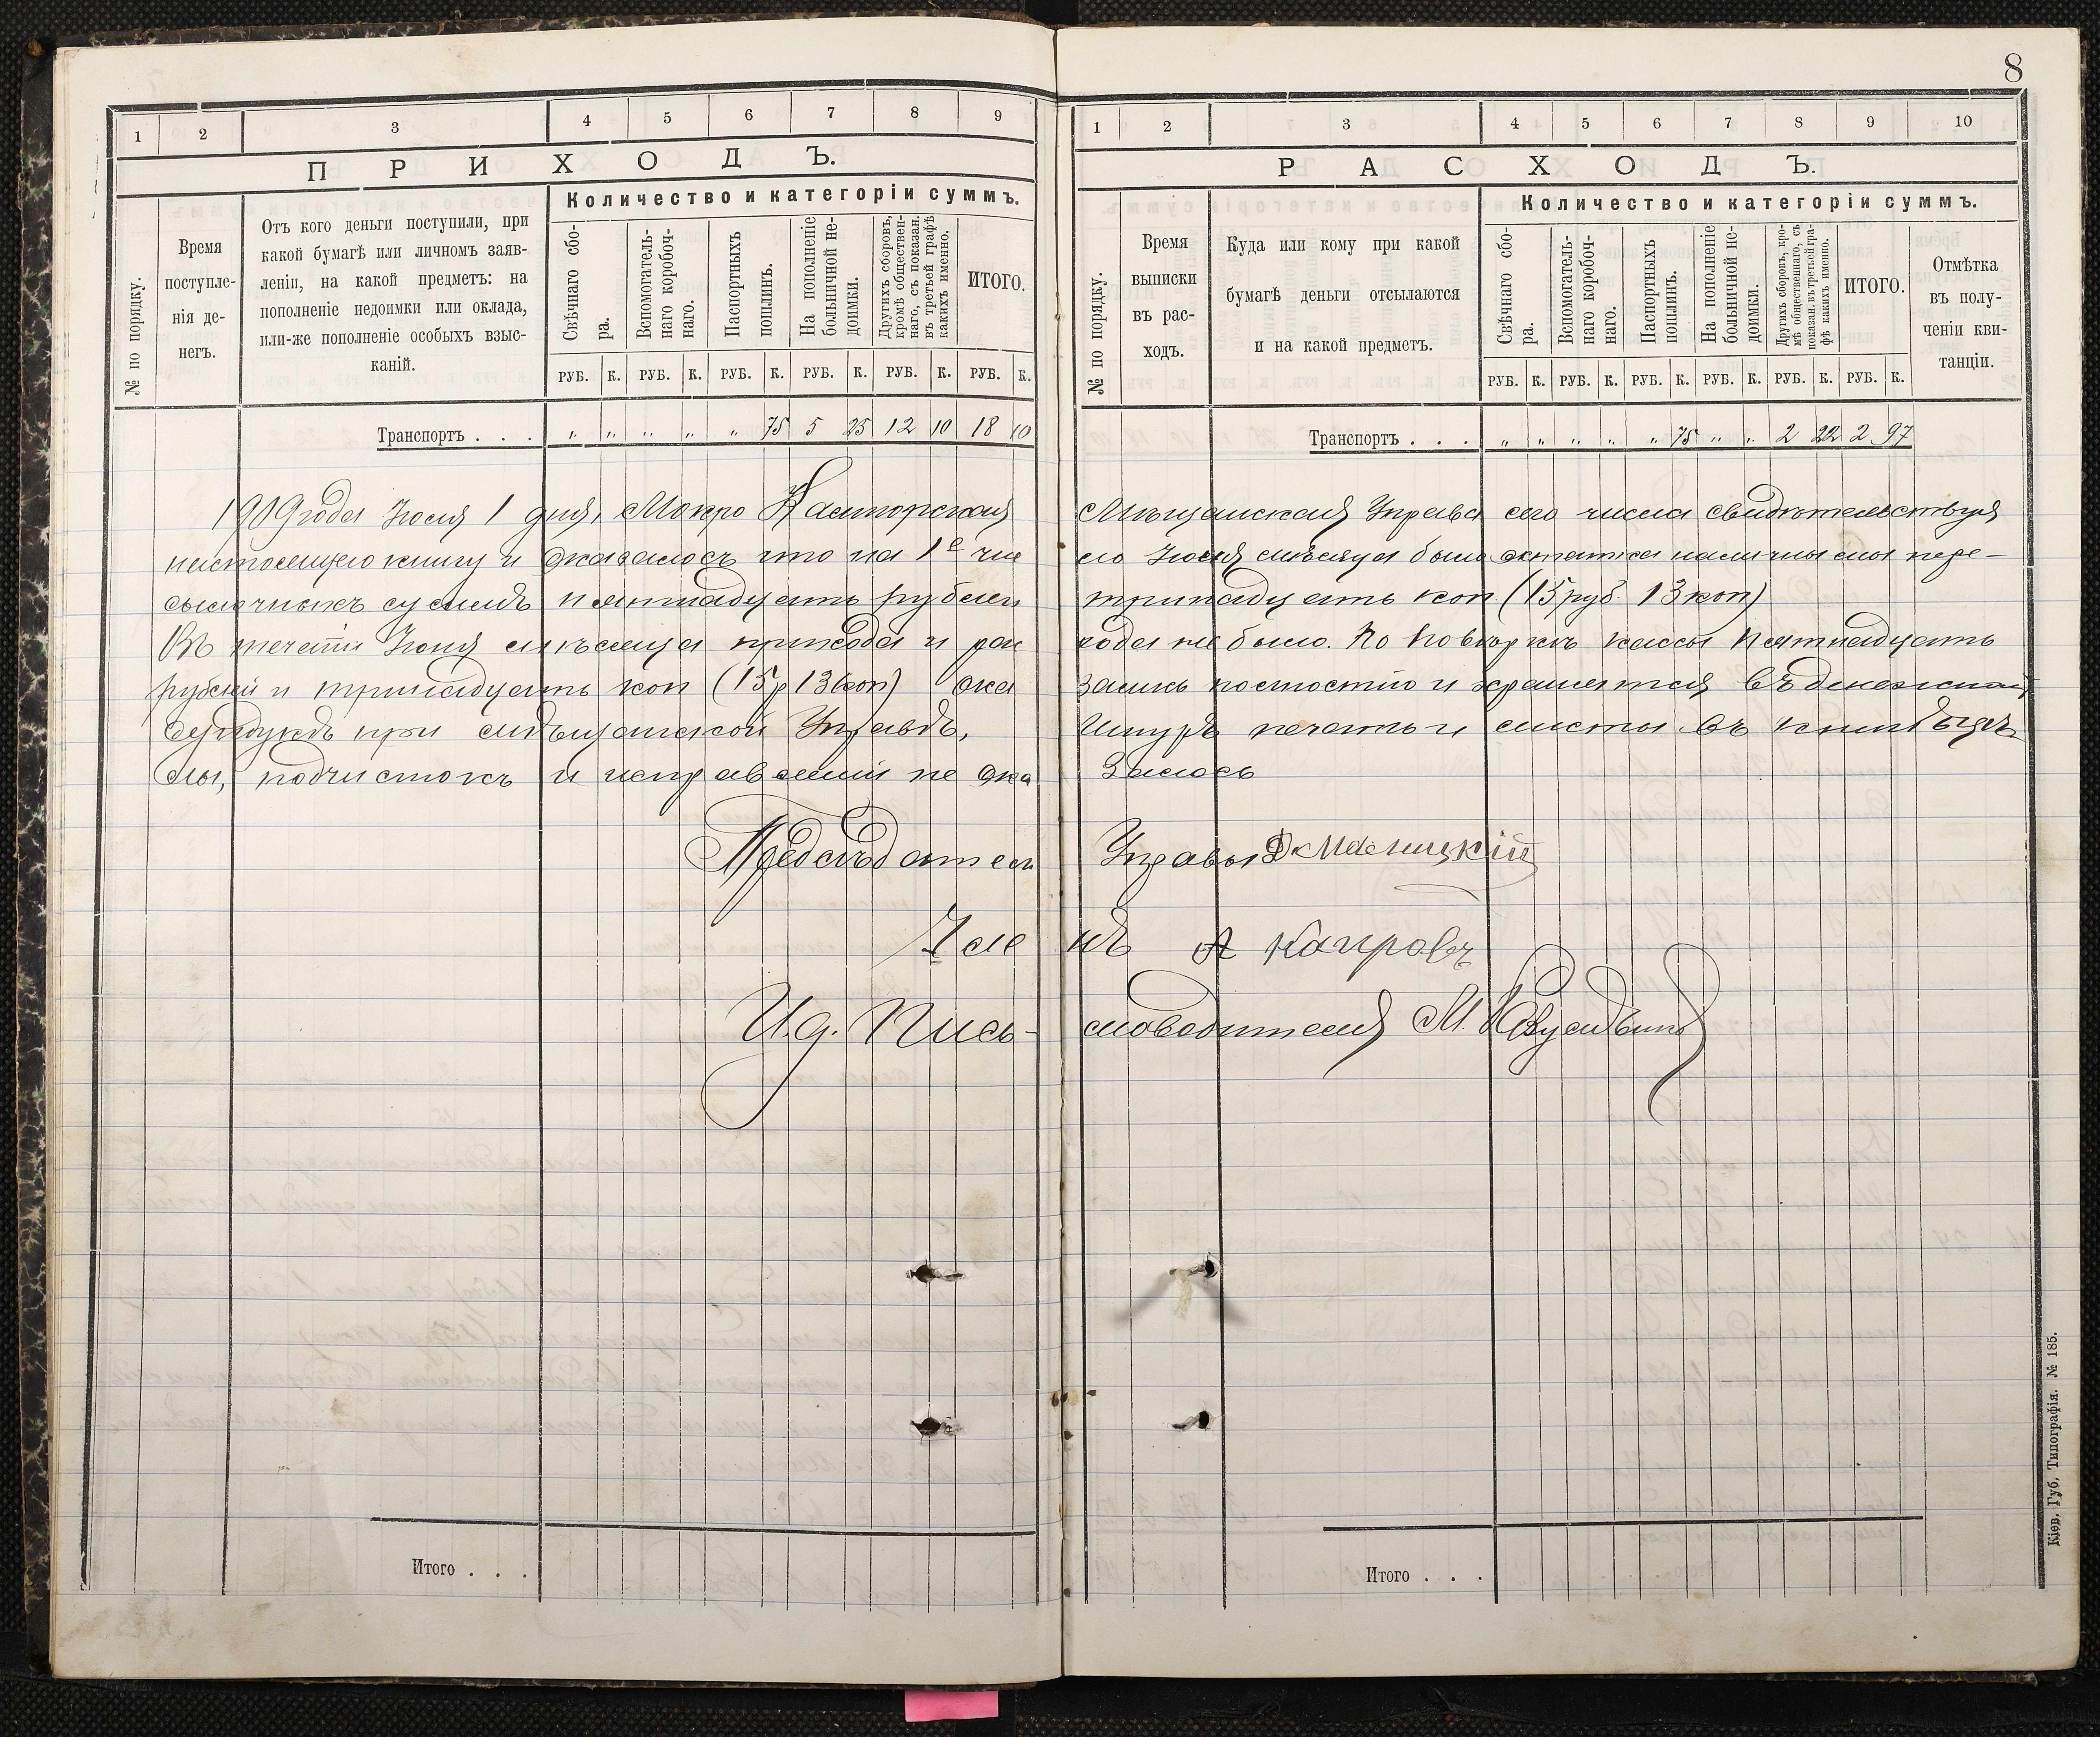 8
1 2 3 4 5 6 7 8 9
ПРИХОДЪ.
№ по порядку.
Время
поступле-
нія де-
негъ.
Отъ кого деньги поступили, при
какой бумагѣ или личномъ заяв-
леніи, на какой предметъ: на
пополненіе недоимки или оклада,
или-же пополненіе особыхъ взыс-
каній.
Количество и категоріи суммъ.
Свѣчнаго сбо-
ра.
Вспомогатель-
наго коробоч-
наго.
Паспортныхъ
пошлинъ.
На пополненіе
больничной не-
доимки.
Другихъ сборовъ,
кромѣ обществен-
наго, съ показан.
въ третьей графѣ
какихъ именно.
ИТОГО.
РУБ. К. РУБ. К. РУБ. К. РУБ. К. РУБ. К. РУБ. К.
Транспортъ . . . „ „ „ „ „ 75 5 25 12 10 18 10
1 2 3 4 5 6 7 8 9 10
РАСХОДЪ.
№ по порядку.
Время
выписки
въ рас-
ходъ.
Куда или кому при какой
бумагѣ деньги отсылаются
и на какой предметъ.
Количество и категоріи суммъ.
Свѣчнаго сбо-
ра.
Вспомогатель-
наго коробоч-
наго.
Паспортныхъ
пошлинъ.
На пополненіе
больничной не-
доимки.
Другихъ сборовъ, кро-
мѣ общественнаго, съ
показан. въ третьей гра-
фѣ какихъ именно.
ИТОГО.
Отмѣтка
въ полу-
ченіи кви-
танціи.
РУБ. К. РУБ. К. РУБ. К. РУБ. К. РУБ. К. РУБ. К.
Транспортъ . . . „ „ „ „ „ 75 „ „ 2 22 2 97
1909 года Іюля 1 дня, Мокро Калигорская Мѣщанская Управа сего числа свидѣтельствуя
настоящую книгу и оказалось что на 1е чис ло Іюня мѣсяца было остатка наличными пере-
сылочныхъ суммъ пятнадцать рублей тринадцать коп. (15 руб. 13 коп)
Въ теченіи Іюня мѣсяца прихода и рас хода не было. По повѣркѣ кассы пятнадцать
рублей и тринадцать коп (15 р 13 коп) ока зались полностію и хранятся въ денежномъ
сундукѣ при мѣщанской Управѣ, Шнуръ печать и листы въ книгѣ цѣ-
лы, подчистокъ и исправленій не ока залось
Предсѣдатель Управы
Чле нъ А
И. д. Пись- моводителя М.
Итого . . .
Итого . . .
Кіев. Губ. Типографія. № 185.